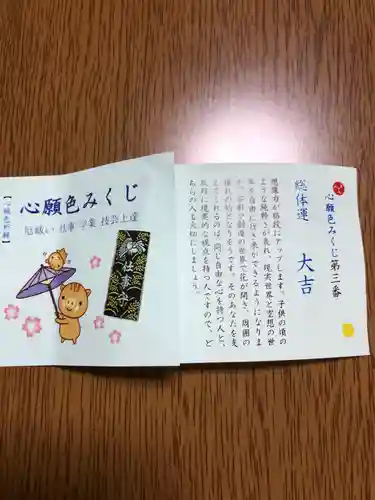 心願色みくじ第三番
総体運 大吉
想像力が格段にアップします。子供の頃の
ような純粋さが表れ、現実世界と空想の世
界を自由に行き来ができるようになりま
す。芸術や創造の世界で花が開き、周囲の
憧れの的となりそうです。そのあなたを支
えてくれるのは、同じ自由な心を持つ人と、
反対に現実的な視点を持つ人ですので、ど
ちらの人も大切にしましょう。
心願色みくじ
厄祓い 仕事 学業 技芸上達
仕事守